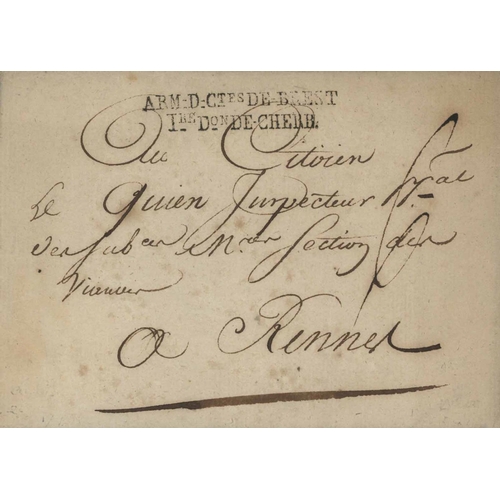 ARM-D-CTES DE-BREST
IRE DON DE-CHERB.
Au Citoien
Le Quien Inspecteur Gral
des Subces Mres Section des
Vivres
a Rennes